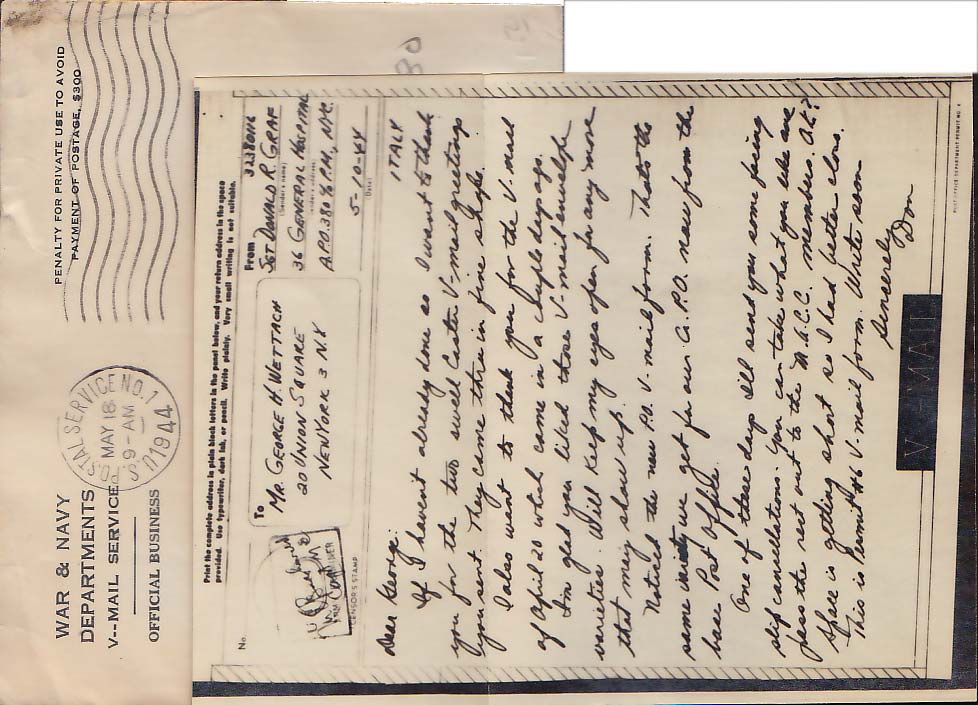 WAR & NAVY
DEPARTMENTS
V--MAIL SERVICE
OFFICIAL BUSINESS
U.S. POSTAL SERVICE NO. 1
MAY 18
9-AM
1944
PENALTY FOR PRIVATE USE TO AVOID
PAYMENT OF POSTAGE, $300
Print the complete address in plain block letters in the panel below, and your return address in the space
provided. Use typewriter, dark ink, or pencil. Write plainly. Very small writing is not suitable.
No.
CENSOR'S STAMP
To
MR. GEORGE H. WETTACH
20 UNION SQUARE
NEW YORK 3 N.Y
From
SGT DONALD R. GRAF
(Sender's name)
36 GENERAL HOSPITAL
(Sender's address)
A.P.O. 380 % P.M., N.Y.C.
5-10-44
(Date)
ITALY
Dear George:
If I havent already done so I want to thank
you for the two swell Easter V-mail greetings
you sent. They came thru in fine shape.
I also want to thank you for the V-mail
of April 20 which came in a couple days ago.
I'm glad you liked those V-mail envelope
varieties. Will keep my eyes open for any more
that may show up.
Noticed the new P.O. V-mail form. Thats the
same we get for our Gr. P.O. new from the
base Post Office.
One of these days Ill send you some facing
slip cancellations. You can take what you like and
pass the rest out to the M.C.C. members. O.K.?
Space is getting short so I had better close.
This is Permit #6 V-mail form. Write soon
Sincerely
Don
V-MAIL
POST OFFICE DEPARTMENT PERMIT NO. 6